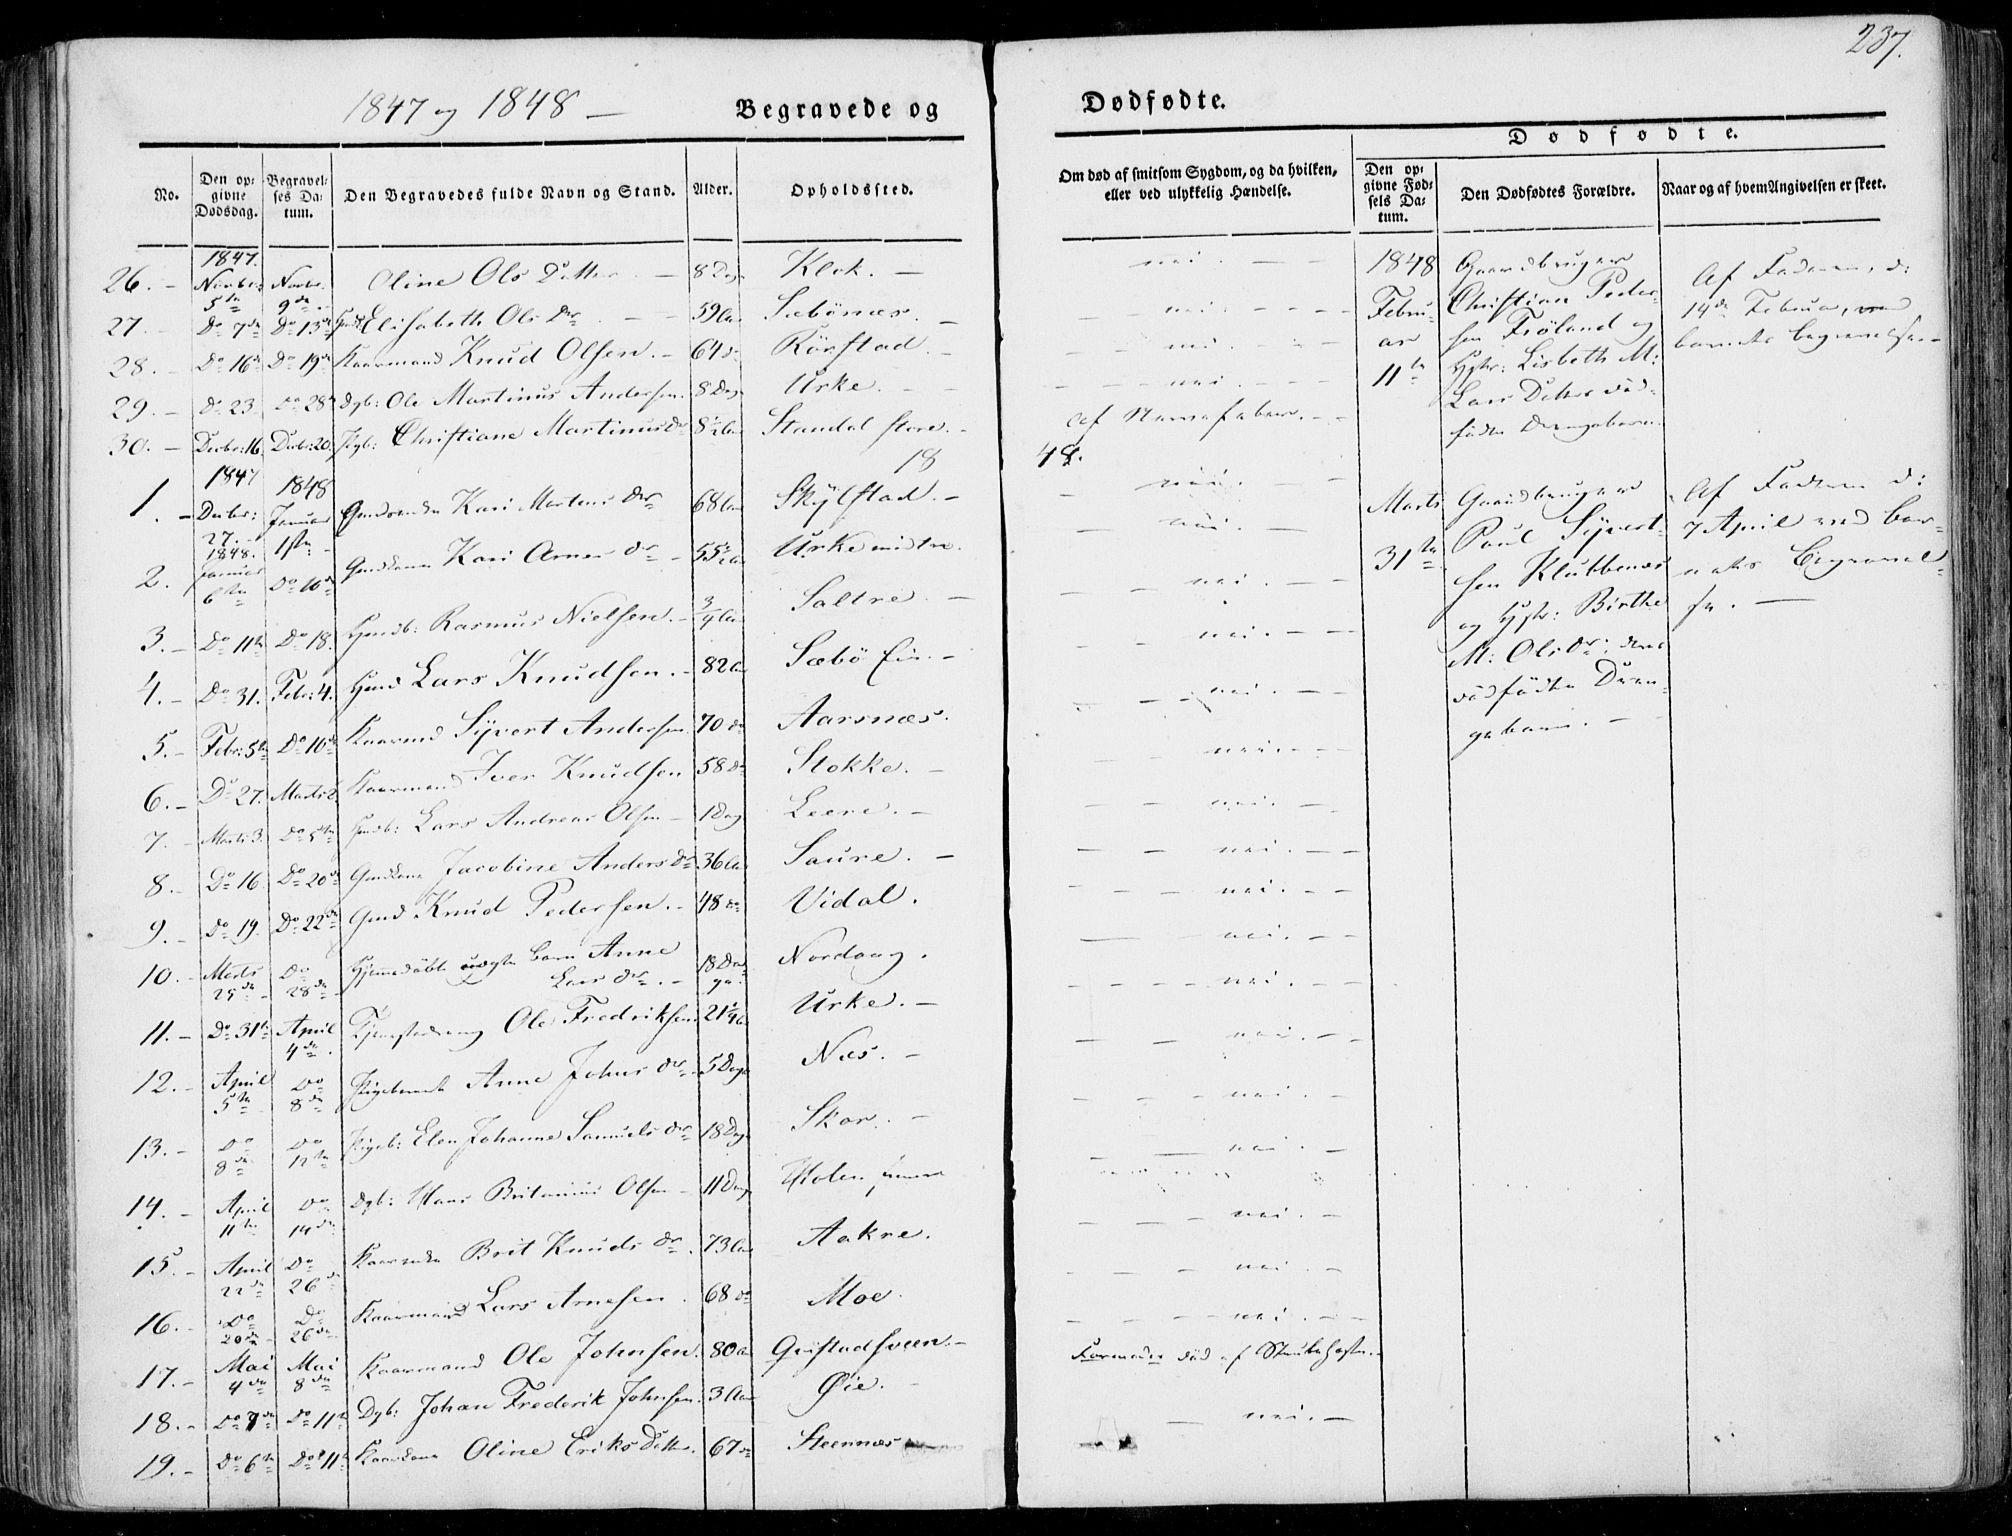 237.
1847 og 1848 — Begravede og Dødfødte.
No. Den opgivne Dødsdag. Begravelses Datum. Den Begravedes fulde Navn og Stand. Alder. Opholdssted.
Om død af smitsom Sygdom, og da hvilken, eller ved ulykkelig Hændelse.
Dødfødte.
Den opgivne Fødsels Datum. Den Dødfødtes Forældre. Naar og af hvem Angivelsen er skeet.
1847.
26. - Novbr: 5te Novbr. 9de Oline Ols Datter - 8 Dage Klok. - nei. -
27. - Do 7de Do 13de Elisabeth Ols Dr - 59 Aar Sæbönæs. - nei. -
28. - Do 16de Do 19de Kaarmand Knud Olsen. - 64 do Rörstad. - nei. -
29. - Do 23 Do 28de Dgb: Ole Martinus Andersen. 8 Dage Urke. - nei. -
30. - Decbr: 16. Decbr: 20. Pigb: Christiane Martinus Dr 8½ Aar Standal store. - af Nervefeber. -
1848.
1847 1848
1. - Decbr: 27. Januar 1ste Kari Mortens Dr 68 Aar Skylstad. - nei. -
1848.
2. Januar 6te Do 10de Gmdkone Kari Arnes Dr - 55½ Aar Urke midtre. nei. -
3. - Do 11te Do 18. Rasmus Nielsen. - ¾ Aar Saltre. - nei. -
4. - Do 31. Febr: 4. Lars Knudsen. - 82 Aar Sæbö Eie. - nei. -
5. - Febr: 5te Do 10de Kaarmd Syvert Andersen 70 do Aarsnæs. nei. -
6. - Do 27. Marts 2. Kaarmand Iver Knudsen 58 do Stokke. - nei. -
7. - Marts 3. Do 5te Lars Andreas Olsen - 1 Dag Leere. - nei. -
8. - Do 16. Do 20de Gmdkone Jacobine Anders Dr 36 Aar Saure. - nei. -
9. - Do 19. Do 22de Gmd Knud Pedersen. - 48 do Vidal. nei. -
10. - Marts 25de Do 28de Hjemmedöbt uægte Barn Anne Lars Dr. - 18 Dage. Nordang. nei. -
11. - Do 31te April 4de Tjenestedreng Ole Fredriksen 21¼ Aar Urke. - nei. -
12. - April 5te Do 8de Pigebarnet Anne Johns Dr - 5 Dage Næs. - nei. -
13. - Do 8de Do 12te Pigeb: Elen Johanne Samuels Dr 18 Dage Skor. - nei. -
14. - April 11te Do 14de Dgb: Hans Britanius Olsen - 11 Dage Holen - nei. -
15. - April 22de Do 26de Brit Knuds Dr. 73 Aar Aakre. nei. -
16. - Do 20de Do 26de Kaarmand Lars Arnesen. 68 do Moe. nei. -
17. - Mai 4de Mai 8de Kaarmand Ole Johnsen. 80 Aar - Formodes död af Strubehoste. -
18. - Do 7de Do 11te Dgb: Johan Frederik Johnsen. 3 Aar Øie. -
19. - Do 6te Do 11te Kaarkone Oline Eriks Datter. 67 do Steennæs nei. -
1848
Februar 11te
Gaardbruger
Christian Pedersen
Fröland og
Hstr: Lisbeth M:
Lars Datter död-
födte Drengebarn
Af Faderen, d:
14de Februar, ved
barnets begravelse. -
Marts 31te
Gaardbruger
Paul Syvertsen
Klubbenæs
og Hstr: Birthe
M: Ols Dr: deres
dödfödte Dren-
gebarn. -
Af Faderen d:
7 April ved bar-
nets Begravel-
se. -